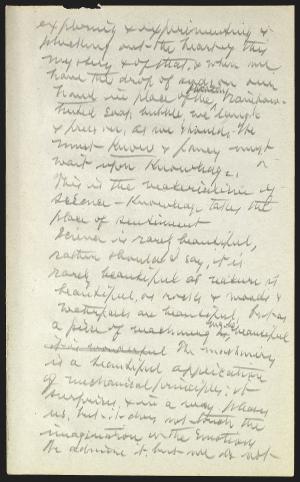 exploring & experimenting &
plucking out the heart of this
mystery & of that, & when we
have the drop of suds on our
hand in place of the rainbow-
tinted soap bubble, we laugh
& pass on, as we should. We
must know & fancy must
wait upon knowledge.
This is the materialism of
science – knowledge takes the
place of sentiment
Science is rarely beautiful,
rather should I say, it is
rarely beautiful as nature is
beautiful, as rocks & woods &
waterfalls are beautiful, but as
a piece of machinery may be beautiful
it is wonderful The machinery
is a beautiful application
of mechanical principles; it
surprises & in a way pleases
us, but it does not touch the
imagination or the emotions
We admire it, but we do not